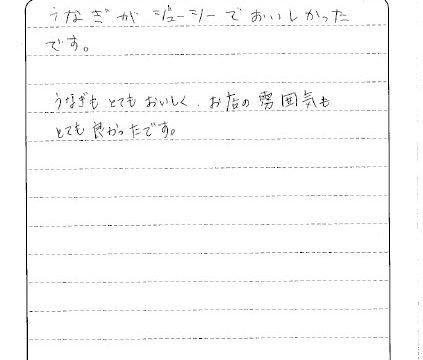 うなぎがジューシーでおいしかった
です。
うなぎもとてもおいしく、お店の雰囲気も
とても良かったです。